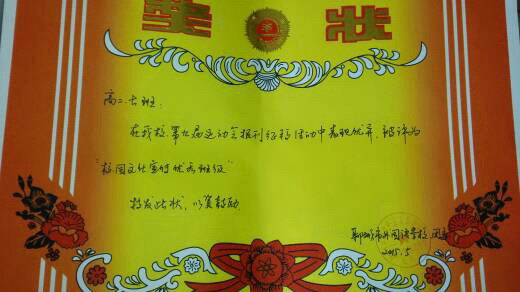 奖 状
高二.七班:
在我校第九届运动会报刊征稿活动中表现优异,被评为
"校园文化宣传优秀班级"
特发此状,以资鼓励.
聊城市外国语学校
2015.5